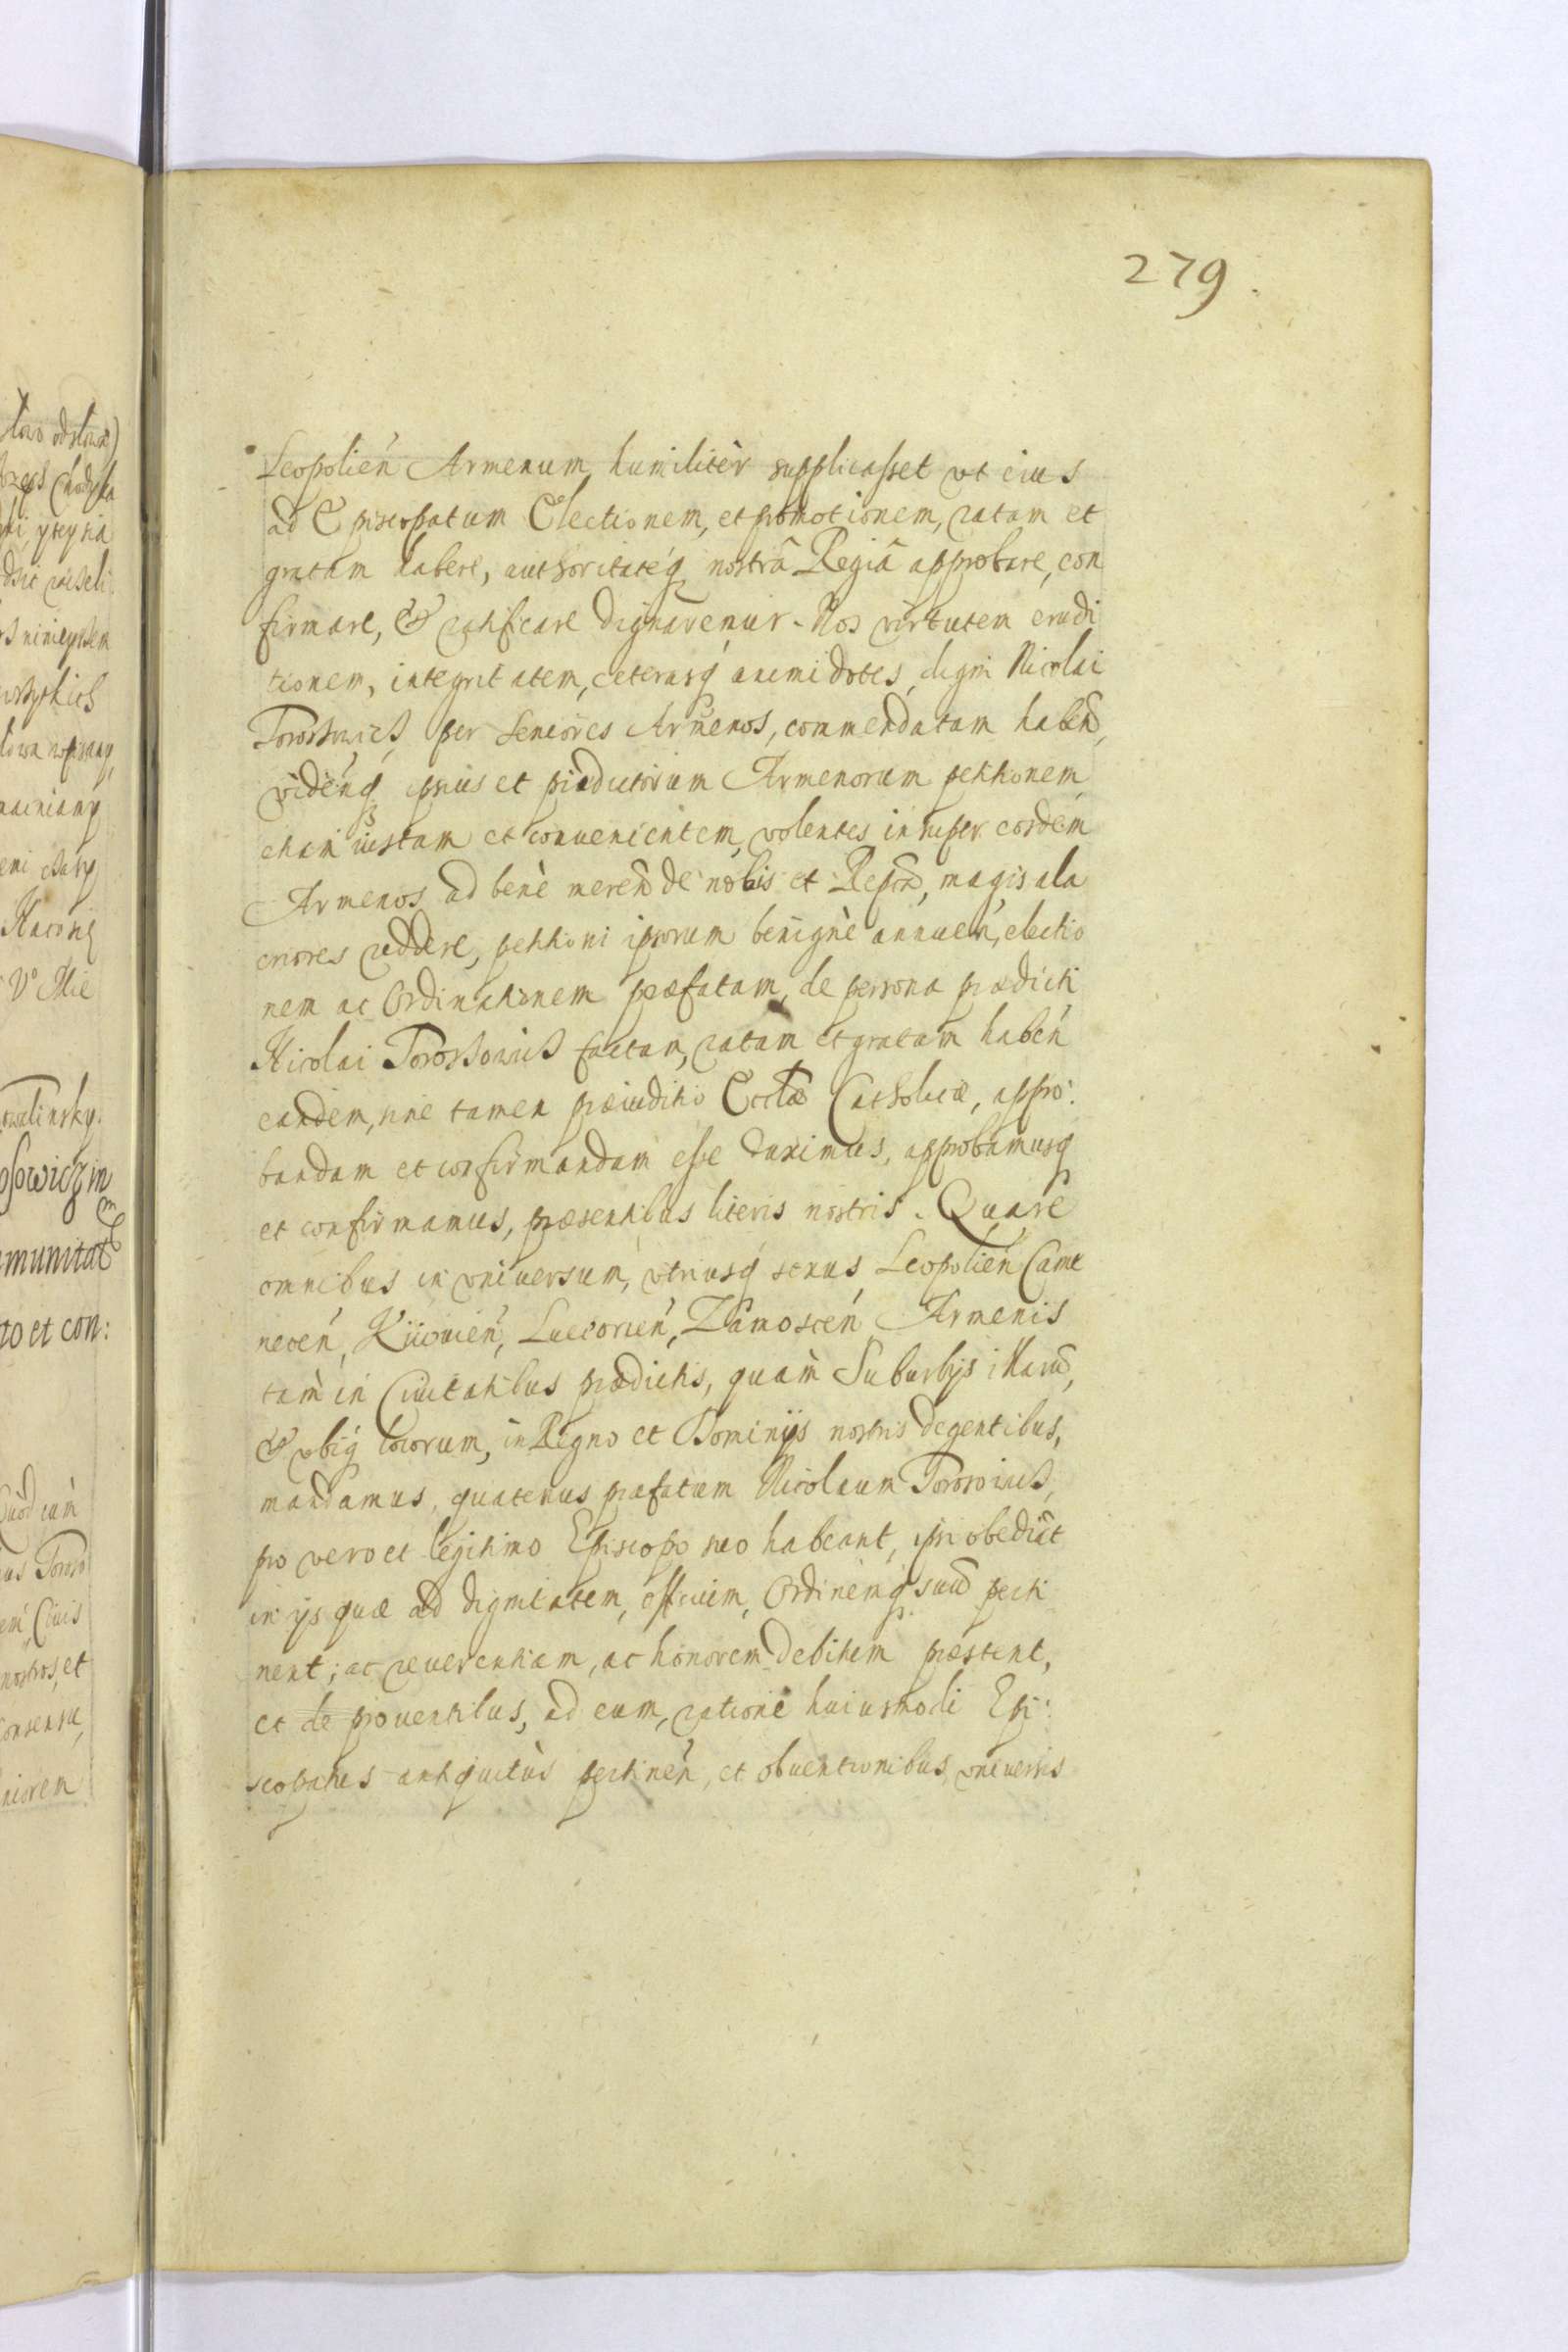 279.
Leopolień Armenum, humilitèr supplicasset vt eius
ad Episcopatum Electionem, et promotionem, ratam et
gratam habere, authoritateq́ nostrâ Regiâ approbare, con
firmare, & ratificare dignaremur. Nos virtutem erudi
tionem, integritatem, ceterasq́ animi dotes, digni Nicolai
Torossowicß, per Seniores Armenos, commendatam habeñ,
videńq́ ipsius et prædictorum Armenorum petitionem,
etiam iustam et conuenientem, volentes insuper eosdem
Armenos, ad benè mereñ de nobis et Repca, magis ala
criores reddere, petitioni ipsorum benignè annueń, electio
nem ac Ordinationem præfatam, de persona prædicti
Nicolai Torossowicß factam, ratam et gratam habeń
eandem, sine tamen præiuditio Eccłæ Catholicæ, appro:
bandam et confirmandam esse duximus, approbamusq́
et confirmamus, præsentibus literis nostris. Quare
omnibus in vniuersum, vtriusq́ sexus, Leopolień Came
neceń, Kiiouień, Luceorień, Zamosceń Armenis
tàm in Ciuitatibus prædictis, quàm Suburbijs illarū,
& vbiq́ locorum, in Regno et Dominijs nostris degentibus,
mandamus, quatenus præfatum Nicolaum Torosowicß,
pro vero et legitimo Episcopo suo habeant, ipsi obediāt
in ijs quæ ad dignitatem, officium, Ordinemq́ suū perti
nent; ac reuerentiam, ac honorem debitum præstent,
et de prouentibus, ad eum, ratione huiusmodi Epi:
scopatus antiquitùs pertineń, et obuentionibus vniuersis